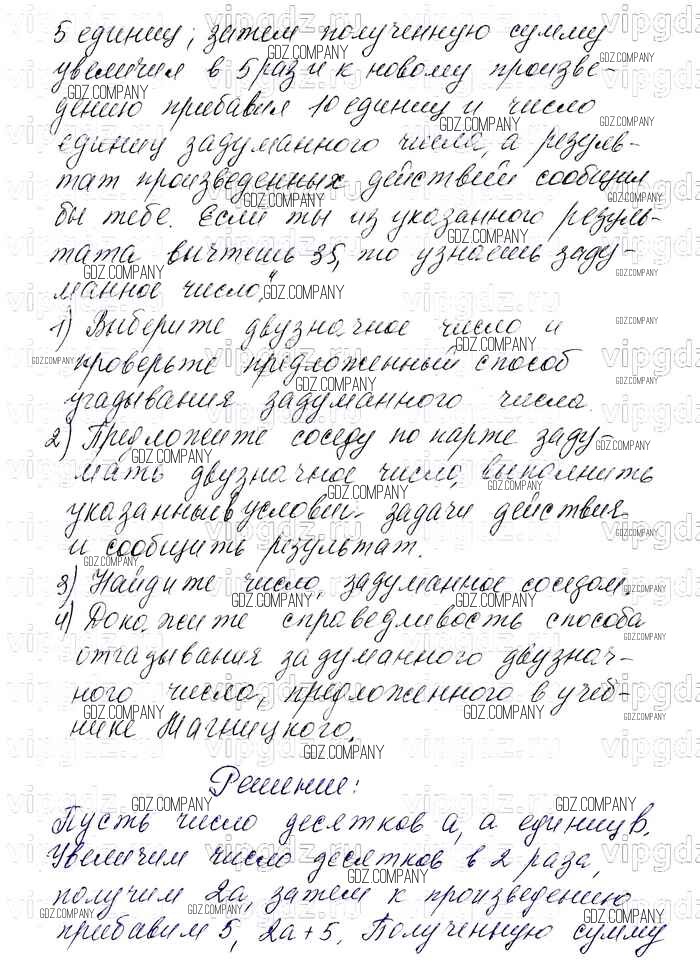 5 единиц; затем полученную сумму
увеличил в 5 раз и к новому произве-
дению прибавил 10 единиц и число
единиц задуманного числа, а резуль-
тат произведенных действий сообщил
бы тебе. Если ты из указанного резуль-
тата вычтешь 35, то узнаешь заду-
манное число."
1) Выберите двузначное число и
проверьте предложенный способ
угадывания задуманного числа.
2) Предложите соседу по парте заду-
мать двузначное число, выполнить
указанные в условии задачи действия
и сообщить результат.
3) Найдите число, задуманное соседом.
4) Докажите справедливость способа
отгадывания задуманного двузнач-
ного числа, предложенного в учеб-
нике Магницкого.
Решение:
Пусть число десятков а, а единиц в.
Увеличим число десятков в 2 раза,
получим 2а, затем к произведению
прибавим 5, 2а+5. Полученную сумму